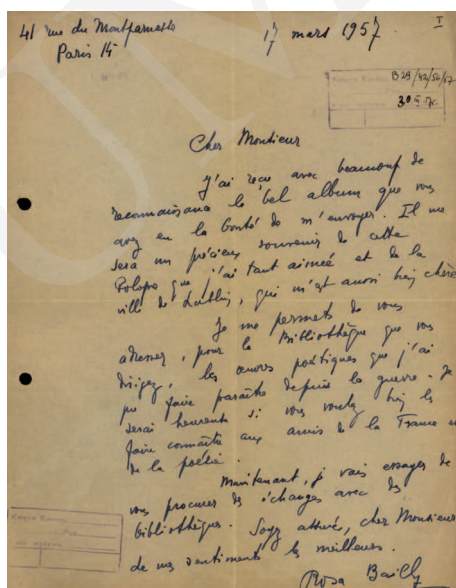 I
41 rue du Montparnasse
Paris 14
17 mars 1957
B 29/42/56/57
Cher Monsieur
J'ai reçu avec beaucoup de
reconnaissance le bel album que vous
avez eu la bonté de m'envoyer. Il me
sera un précieux souvenir de cette
Pologne que j'ai tant aimée et de la
ville de Lublin, qui m'est aussi bien chère
Je me permets de vous
adresser, pour la Bibliothèque que vous
dirigez, les œuvres poétiques que j'ai
pu faire paraître depuis la guerre. Je
serai heureuse si vous voulez bien les
faire connaître aux amis de la France et
de la poésie.
Maintenant, je vais essayer de
vous procurer des échanges avec des
bibliothèques. Soyez assuré, cher Monsieur
de mes sentiments les meilleurs.
Rosa Bailly